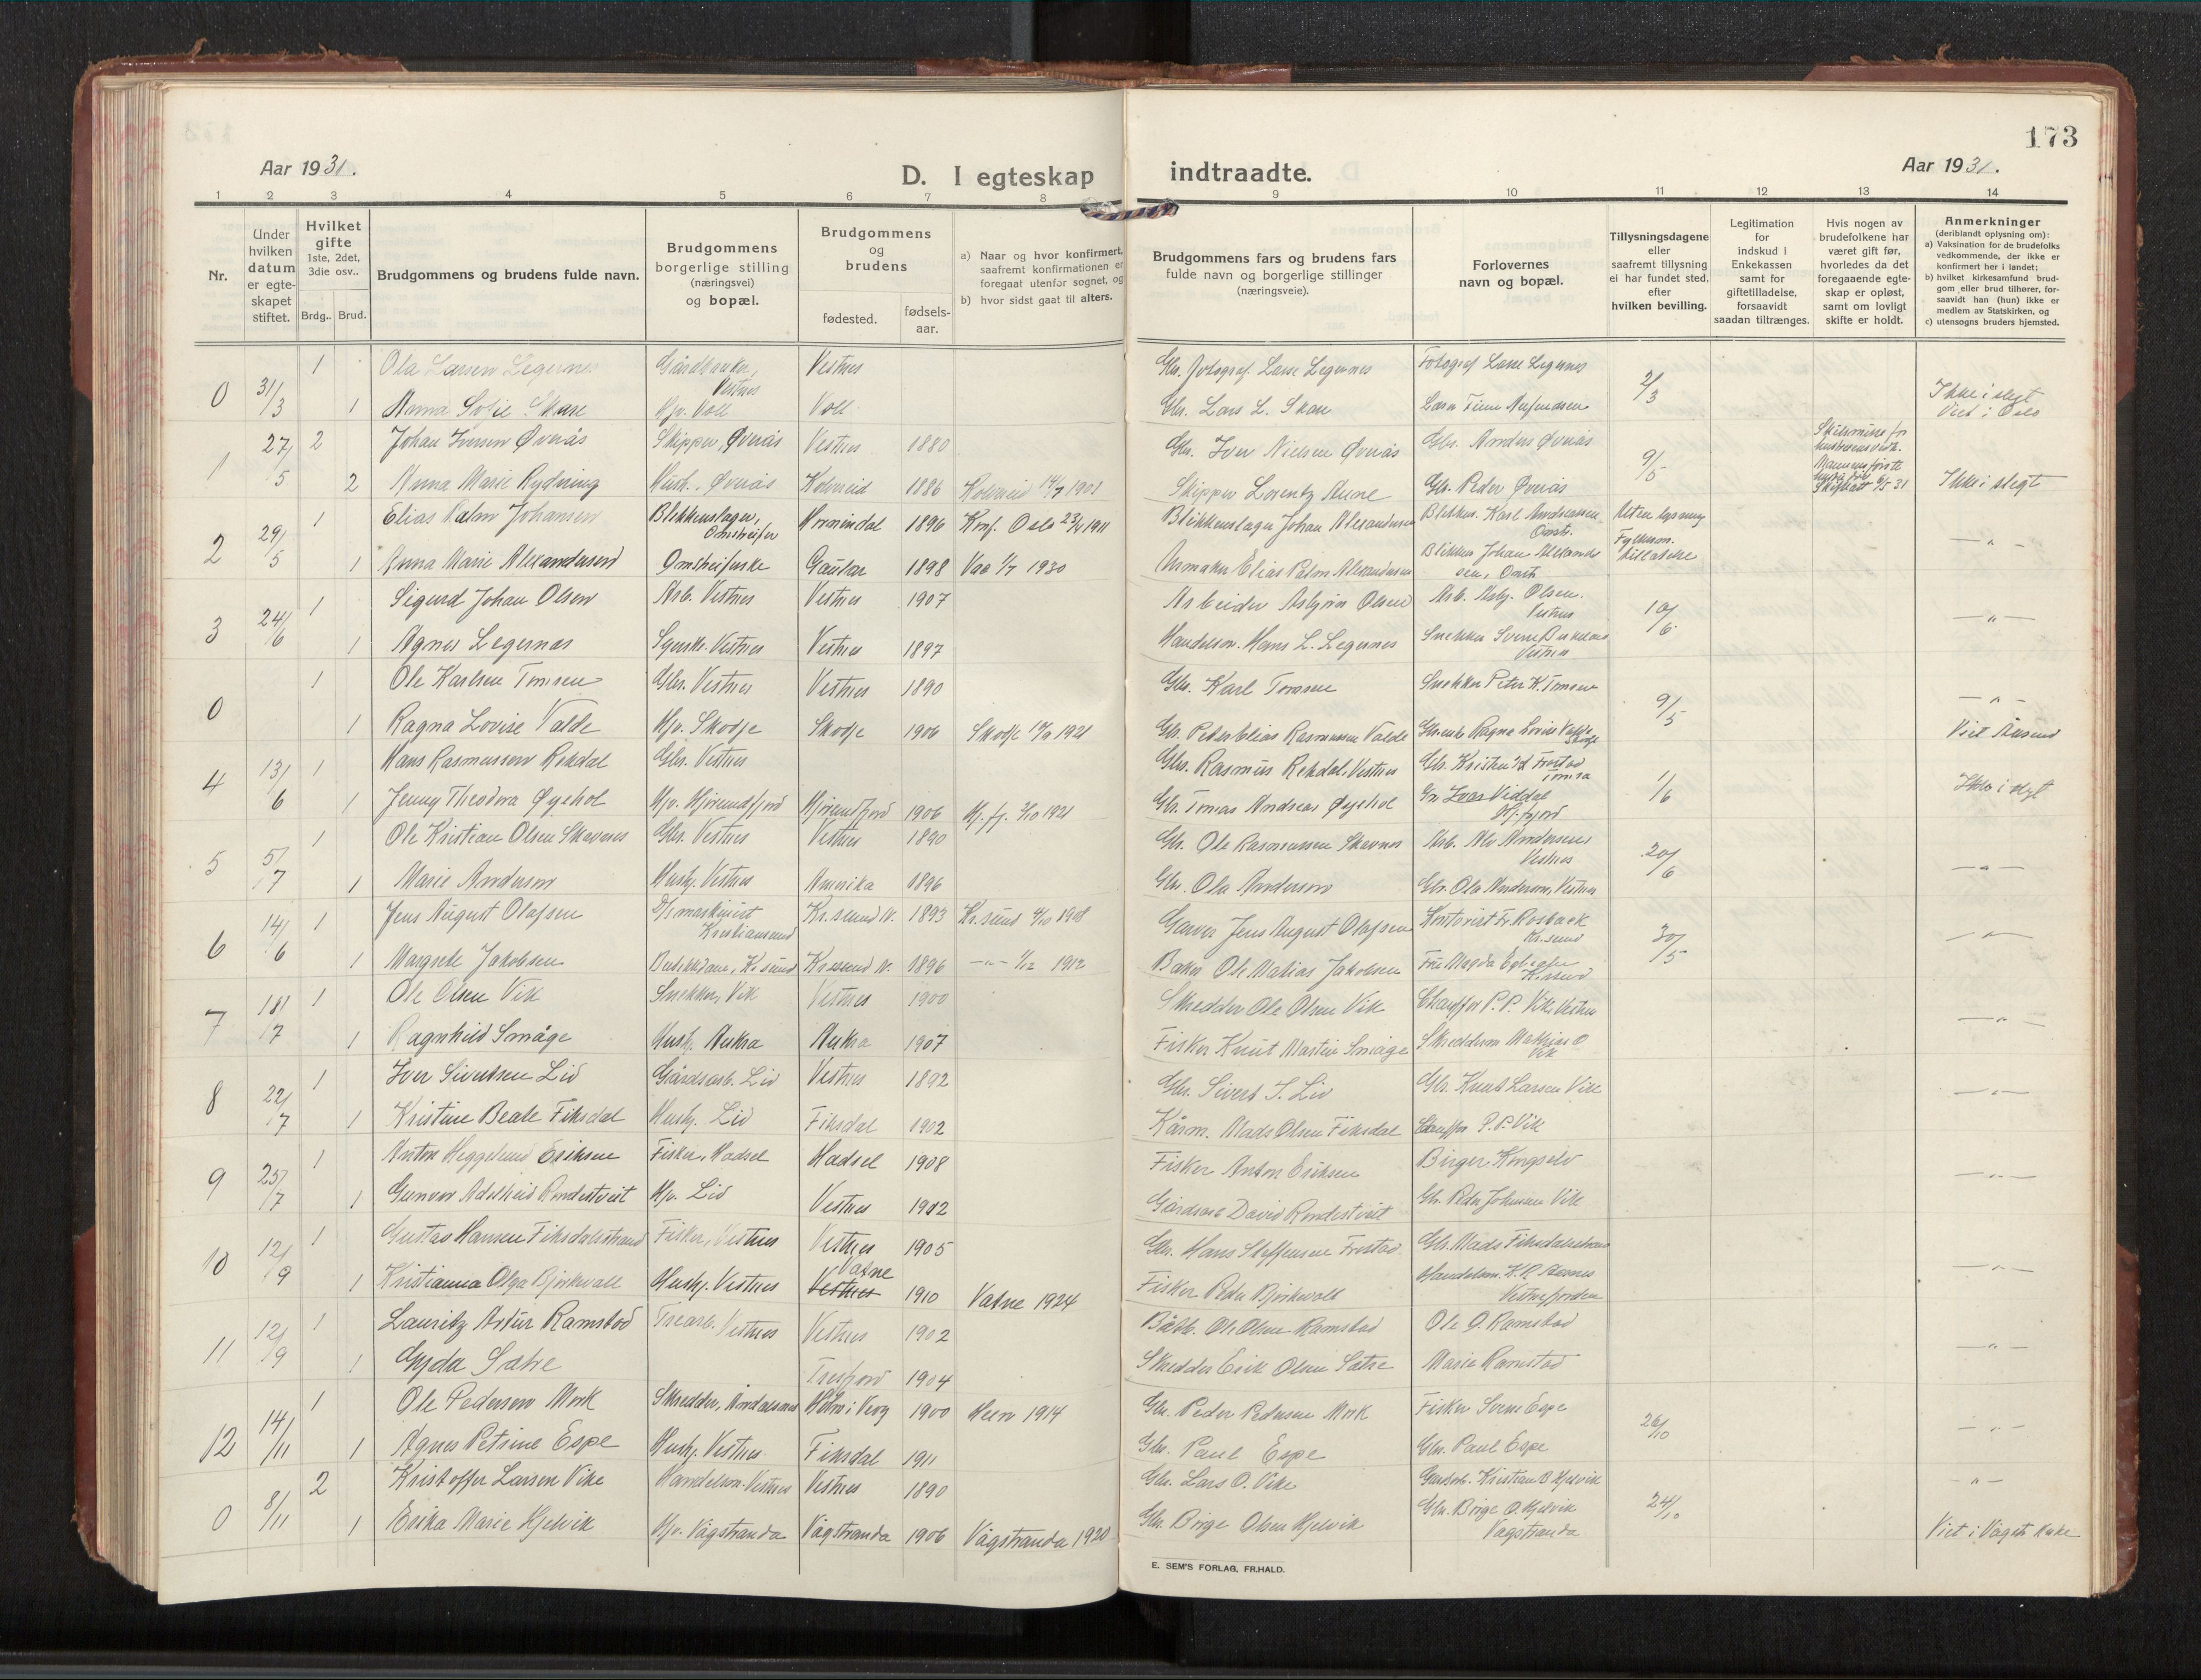 173
Aar 1931.
D. I egteskap indtraadte.
Aar 1931.
1 2 3 4 5 6 7 8 9 10 11 12 13 14
Nr.
Under hvilken datum er egteskapet stiftet.
Hvilket gifte 1ste, 2det, 3die osv..
Brdg.. Brud.
Brudgommens og brudens fulde navn.
Brudgommens borgerlige stilling (næringsvei) og bopæl.
Brudgommens og brudens
fødested.
fødselsaar.
a) Naar og hvor konfirmert, saafremt konfirmationen er foregaat utenfor sognet, og
b) hvor sidst gaat til alters.
Brudgommens fars og brudens fars fulde navn og borgerlige stillinger (næringsveie).
Forlovernes navn og bopæl.
Tillysningsdagene eller saafremt tillysning ei har fundet sted, efter hvilken bevilling.
Legitimation for indskud i Enkekassen samt for giftetilladelse, forsaavidt saadan tiltrænges.
Hvis nogen av brudefolkene har været gift før, hvorledes da det foregaaende egteskap er opløst, samt om lovligt skifte er holdt.
Anmerkninger (deriblandt oplysning om):
a) Vaksination for de brudefolks vedkommende, der ikke er konfirmert her i landet;
b) hvilket kirkesamfund brudgom eller brud tilhører, forsaavidt han (hun) ikke er medlem av Statskirken, og
c) utensogns bruders hjemsted.
0 31/3 1 Ola Larsen Legernes Gårdbruker, Vestnes Vestnes Gbr. Fotograf Lasse Legernes Fotograf Lasse Legernes 2/3
1 Anna Sofie Skare Hjv. Voll Voll Gbr. Lars L. Skare Ikke i slegt Viet i Oslo
1 27/5 2 Johan Iversen Øverås Skipper, Øverås Vestnes 1880 Gbr. Iver Nielsen Øverås Gbr. Anders Øverås 9/5
2 Anna Marie Rydning Hush. Øverås 1886 14/7 1901 Skipper Lorentz Aune Gbr. Peder Øverås Ikke i slegt
2 29/5 1 Elias Palm Johansen Blikkenslager, Hornindal 1896 Konf. Oslo 23/4 1911 Blikkenslager Johan Alexandersen Blikkensl. Karl Andreassen Uten lysning
1 Anna Marie Alexandersen Gaular 1898 Vaa 1/7 1930 Elias Palm Alexandersen Blikkensl. Johan Alexandersen, Omstr. Fylkesm. tillatelse -"-
3 24/6 1 Sigurd Johan Olsen Arb. Vestnes Vestnes 1907 Arbeider Asbjørn Olsen Arb. Asbj. Olsen. Vestnes 10/6
1 Agnes Legernes Syerske Vestnes Vestnes 1897 Handelsm. Hans L. Legernes Snekker Vestnes -"-
0 1 Ole Karlsen Tomren Gbr. Vestnes Vestnes 1890 Gbr. Karl Tomren Snekker Peter K. Tomren 9/5 -"-
1 Ragna Lovise Valde Hjv. Skodje Skodje 1906 Skodje 1921 Gbr. Peder Elias Rasmussen Valde Ragna Lovise Valde Skodje Viet Ålesund
4 13/6 1 Hans Rasmussen Rekdal Gbr. Vestnes Gbr. Rasmus Rekdal, Vestnes Gbr. Kristen Frostad Tomra 1/6 Ikke i slegt
1 Jenny Theodora Øyehol Hjv. Hjørundfjord Hjørundfjord 1906 Hj.fj. 2/10 1921 Gbr. Tomas Andreas Øyehol Gbr. Ivar Viddal Hj.fjord
5 5/7 1 Ole Kristian Olsen Skavnes Gbr. Vestnes Vestnes 1890 Gbr. Ole Rasmussen Skavnes Arb. Alv Andersen Vestnes 20/6
1 Marie Anderson Hush. Vestnes Amerika 1896 Gbr. Ola Anderson Gbr. Ola Anderson, Vestnes -"-
6 14/6 1 Jens August Olafsen D/s maskinist Kristiansund Kr.sund N. 1893 Kr.sund 4/10 1908 Garver Jens August Olafsen Kontorist Fr. Rosbæk Kr.sund 30/5
1 Margrete Jakobsen Butikkdame, Kr.sund Kr.sund N. 1896 -"- 1/12 1912 Baker Ole Matias Jakobsen Fru Magda Kr.sund -"-
7 18/7 1 Ole Olsen Vik Snekker, Vik Vestnes 1900 Skredder Ole Olsen Vik Chauffør P.P. Vik, Vestnes
1 Ragnhild Småge Hush. Aukra Aukra 1907 Fisker Knut Martin Småge Skredderm. Mathias O Vik -"-
8 22/7 1 Iver Sivertsen Lid Gårdsarb. Lid Vestnes 1892 Gbr. Sivert S. Lid Gbr. Knut Larsen Vik
1 Kristine Beate Fiksdal Hush. Lid Fiksdal 1902 Kårm. Mads Olsen Fiksdal Chauffør P.P. Vik -"-
9 25/7 1 Anton Heggelund Eriksen Fisker, Hadsel Hadsel 1908 Fisker Anton Eriksen Birger Kongselv
1 Gunvor Adelheid Rondestveit Hjv. Lid Vestnes 1912 Gårdsarb. David Rondestveit Gbr. Peder Johnsen Vik -"-
10 12/9 1 Gustav Hansen Fiksdalsstrand Fisker, Vestnes Vestnes 1905 Gbr. Hans Steffensen Frostad Gbr. Mads Fiksdalsstrand
1 Kristianna Olga Bjørkevoll Hush. Vestnes Vestnes Vatne 1910 Vatne 1924 Fisker Peder Bjørkevoll Handelsm. K.R. Vestnes -"-
11 12/9 1 Lauritz Artur Ramstad Trearb. Vestnes Vestnes 1902 Båtb. Ole Olsen Ramstad Ole O. Ramstad
1 Gyda Sætre Tresfjord 1904 Skredder Erik Olsen Sætre Marie Ramstad -"-
12 14/11 1 Ole Pedersen Mork Skredder, Åndalsnes Holm i Veøy 1900 Heen 1914 Gbr. Peder Pedersen Mork Fisker Sverre Espe 26/10
1 Agnes Petrine Espe Hush. Vestnes Fiksdal 1911 Gbr. Paul Espe Gbr. Paul Espe -"-
0 8/11 2 Kristoffer Larsen Vike Handelsm. Vestnes Vestnes 1890 Gbr. Lars O. Vike Kristian B Hjelvik 24/10 -"-
1 Erika Marie Hjelvik Hjv. Vågstranda Vågstranda 1906 Vågstranda 1920 Gbr. Birge Olsen Hjelvik Gbr. Birge O. Hjelvik Vågstranda Viet i Vågstr. kirke
E. SEM'S FORLAG, FR.HALD.